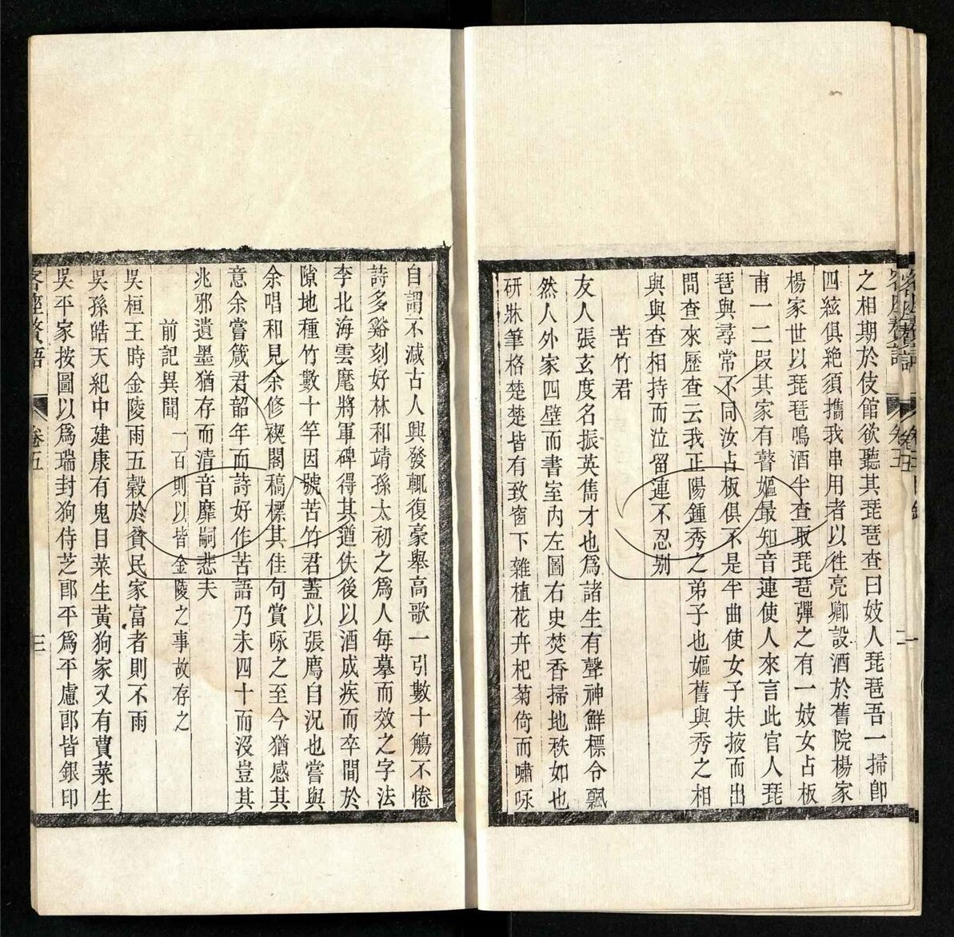 之相期於伎館欲聽其琵琶查曰妓人琵琶吾一掃卽
四絃俱絶須攜我串用者以徃亮卿設酒於舊院楊家
楊家世以琵琶鳴酒半查取琵琶彈之有一妓女占板
甫一二段其家有瞽嫗最知音連使人來言此官人琵
琶與尋常不同汝占板俱不是半曲使女子扶掖而出
問查來歷查云我正陽鍾秀之弟子也嫗舊與秀之相
與與查相持而泣留連不忍别
苦竹君
友人張玄度名振英雋才也爲諸生有聲神鮮標令飄
然人外家四壁而書室內左圖右史焚香掃地秩如也
研牀筆格楚楚皆有致窗下雜植花卉杞菊倚而嘯咏
自謂不減古人興發輒復豪舉高歌一引數十觴不惓
詩多谿刻好林和靖孫太初之爲人每摹而效之字法
李北海雲麾將軍碑得其遒佚後以酒成疾而卒間於
隙地種竹數十竿因號苦竹君蓋以張廌自況也嘗與
余唱和見余修禊閣稿標其佳句賞咏之至今猶感其
意余嘗箴君韶年而詩好作苦語乃未四十而沒豈其
兆邪遺墨猶存而清音靡嗣悲夫
前記異聞 一百則以皆金陵之事故存之
吳桓王時金陵雨五穀於貧民家富者則不雨
吳孫皓天紀中建康有鬼目菜生黃狗家又有蕒菜生
吳平家按圖以爲瑞封狗侍芝郞平爲平慮郞皆銀印
客座贅語 卷五 三